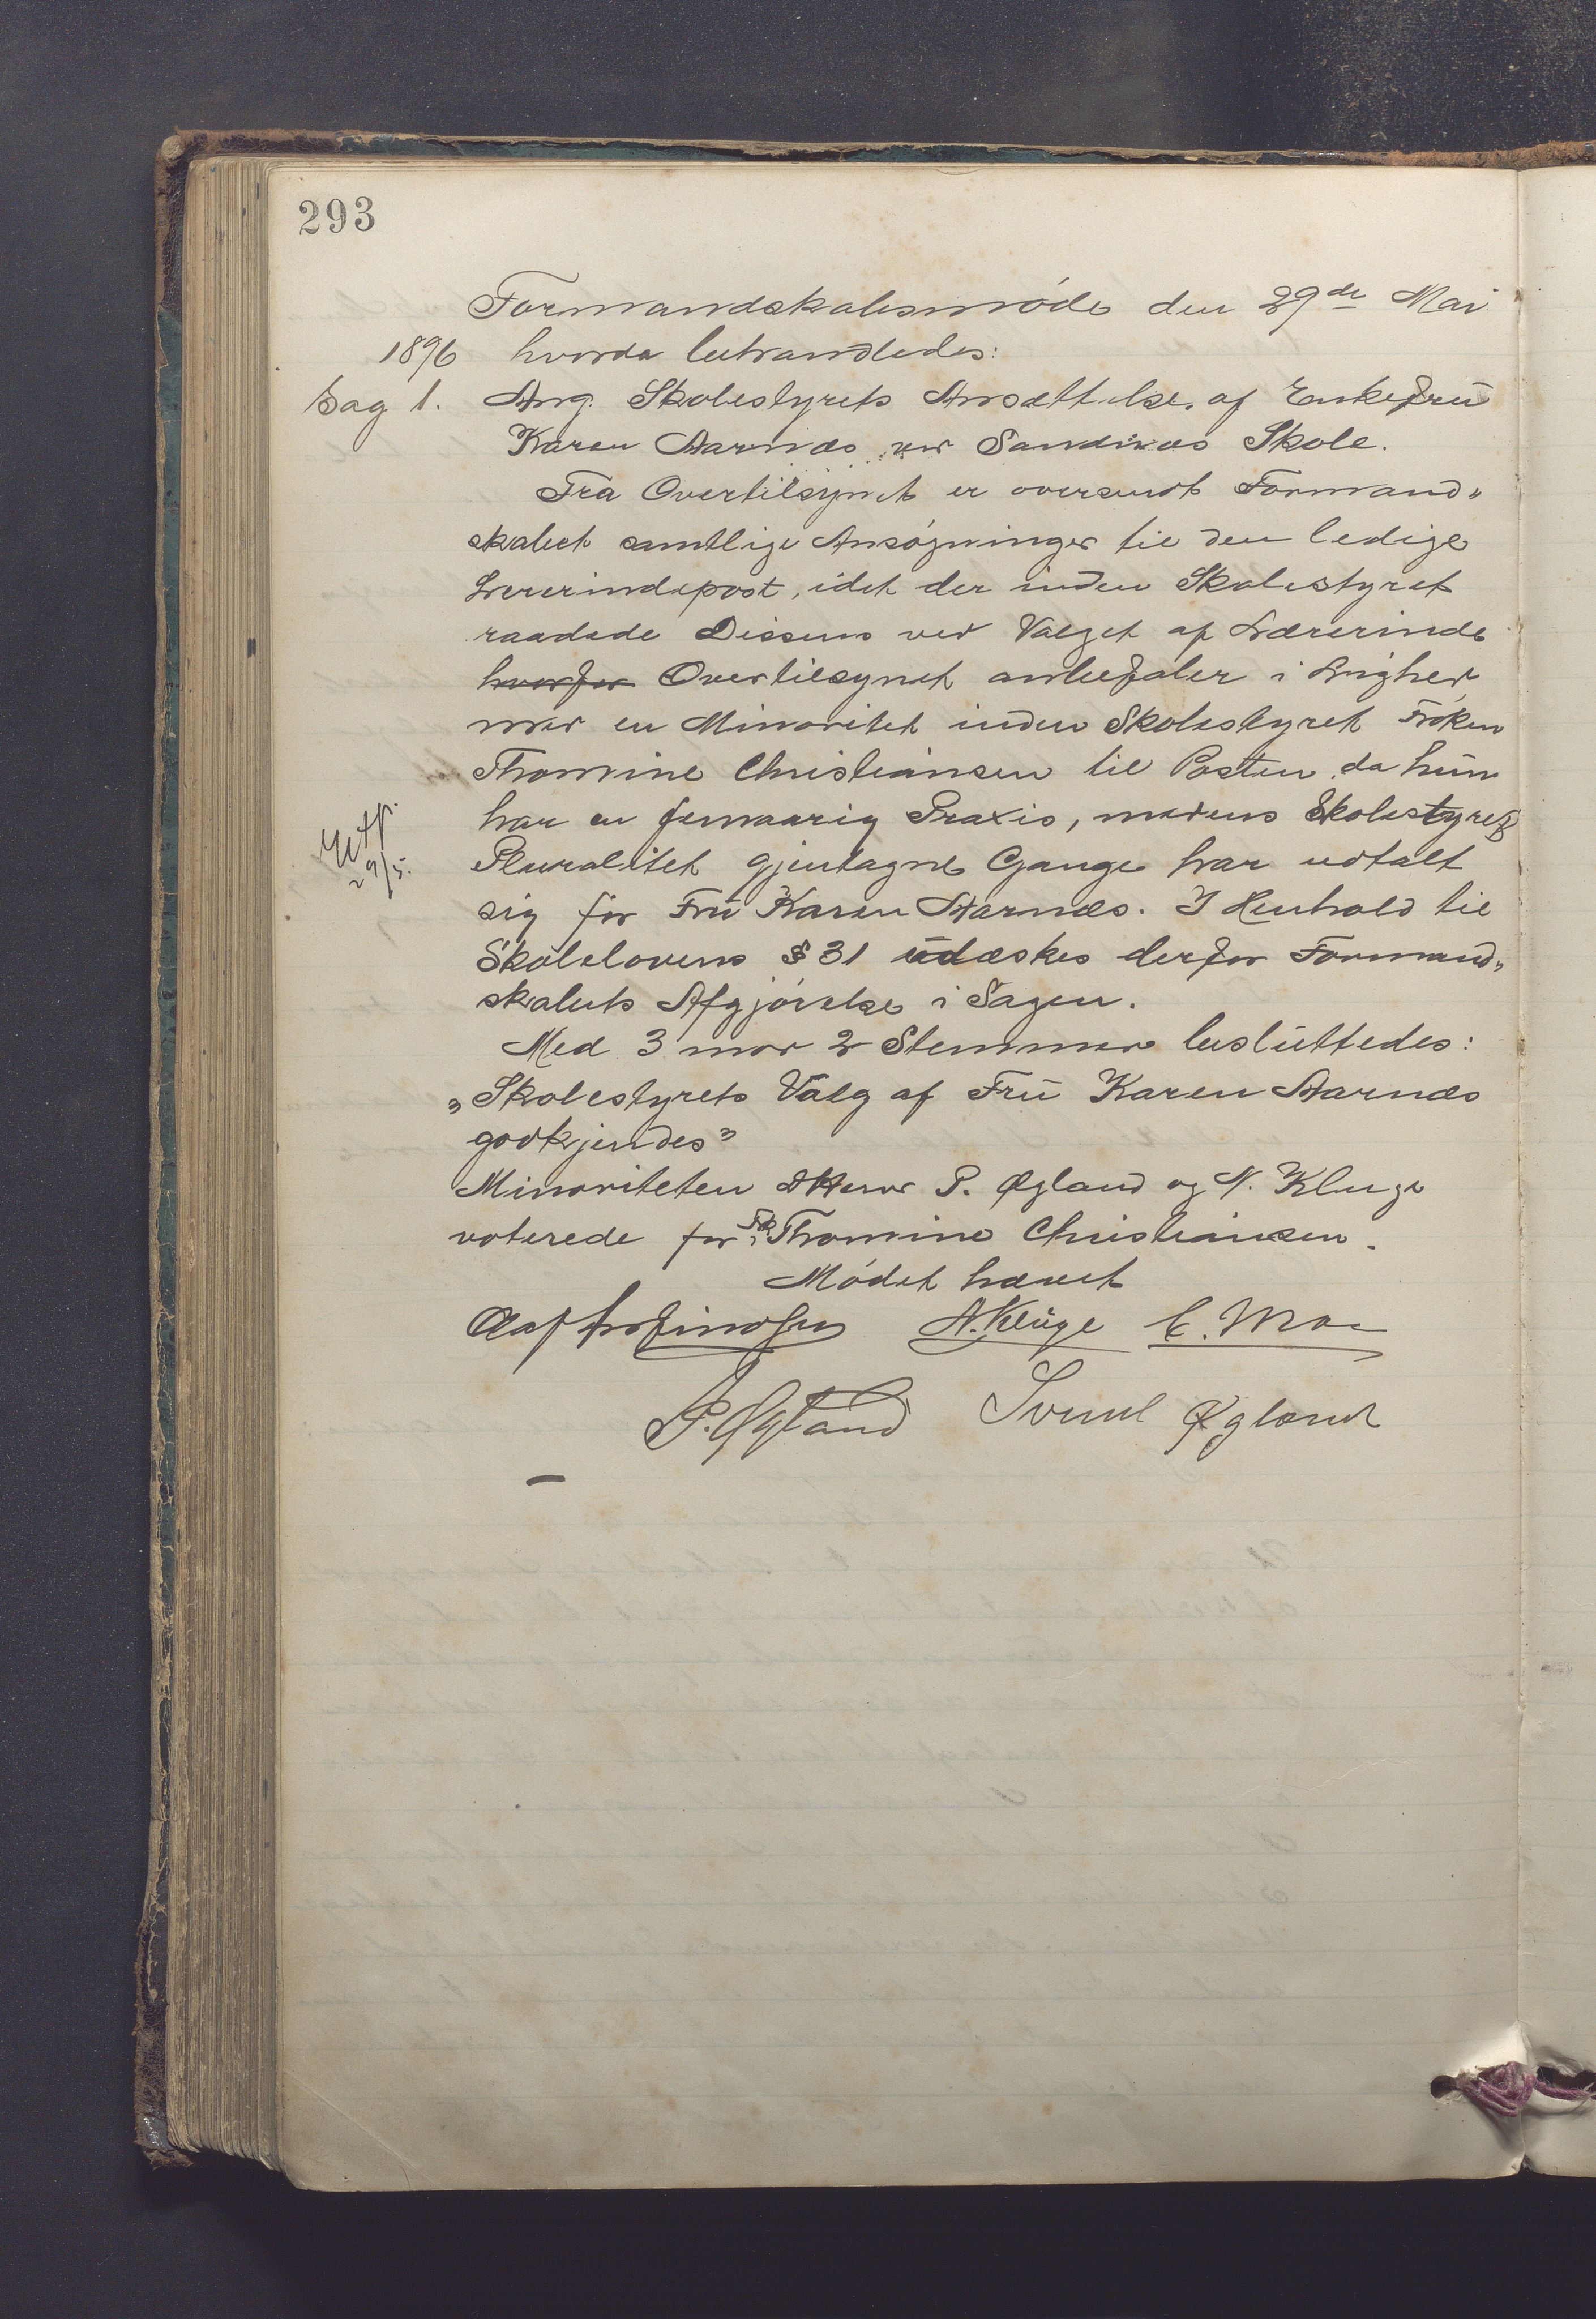 293
Formandskabsmöde den 29de Mai
1896 hvorda behandledes:
Sag 1. Ang. Skolestyrets Ansættelse af Enkefrü
Karen Aarnæs ved Sandnæs Skole.
Fra Overtilsynet er oversendt Formand„
skabet samtlige Ansøgninger til den ledige
Lererindepost, idet der inden Skolestyret
raadede Dissens ved Valget af Lærerinde
hvorfor Overtilsynet anbefaler i Lighed
med en Minoritet inden Skolestyret Fröken
Thomine Christiansen til Posten da hün
har en femaarig Praxis, medens Skolestyrets
Utf.
29/5.
Pluralitet gjentagne Gange har udtalt
sig for Frü Karen Aarnæs. I Henhold til
Skolelovens § 31 üdæskes derfor Formand„
skabets Afgjörelse i Sagen.
Med 3 mod 2 Stemmer beslüttedes:
„Skolestyrets Valg af Frü Karen Aarnæs
godkjendes"
Minoriteten DHerr P. Øgland og N. Kluge
voterede for Frk Thomine Christiansen.
Mödet hævet
N. Klüge C. Moe
P. Øgland Svend Øgland